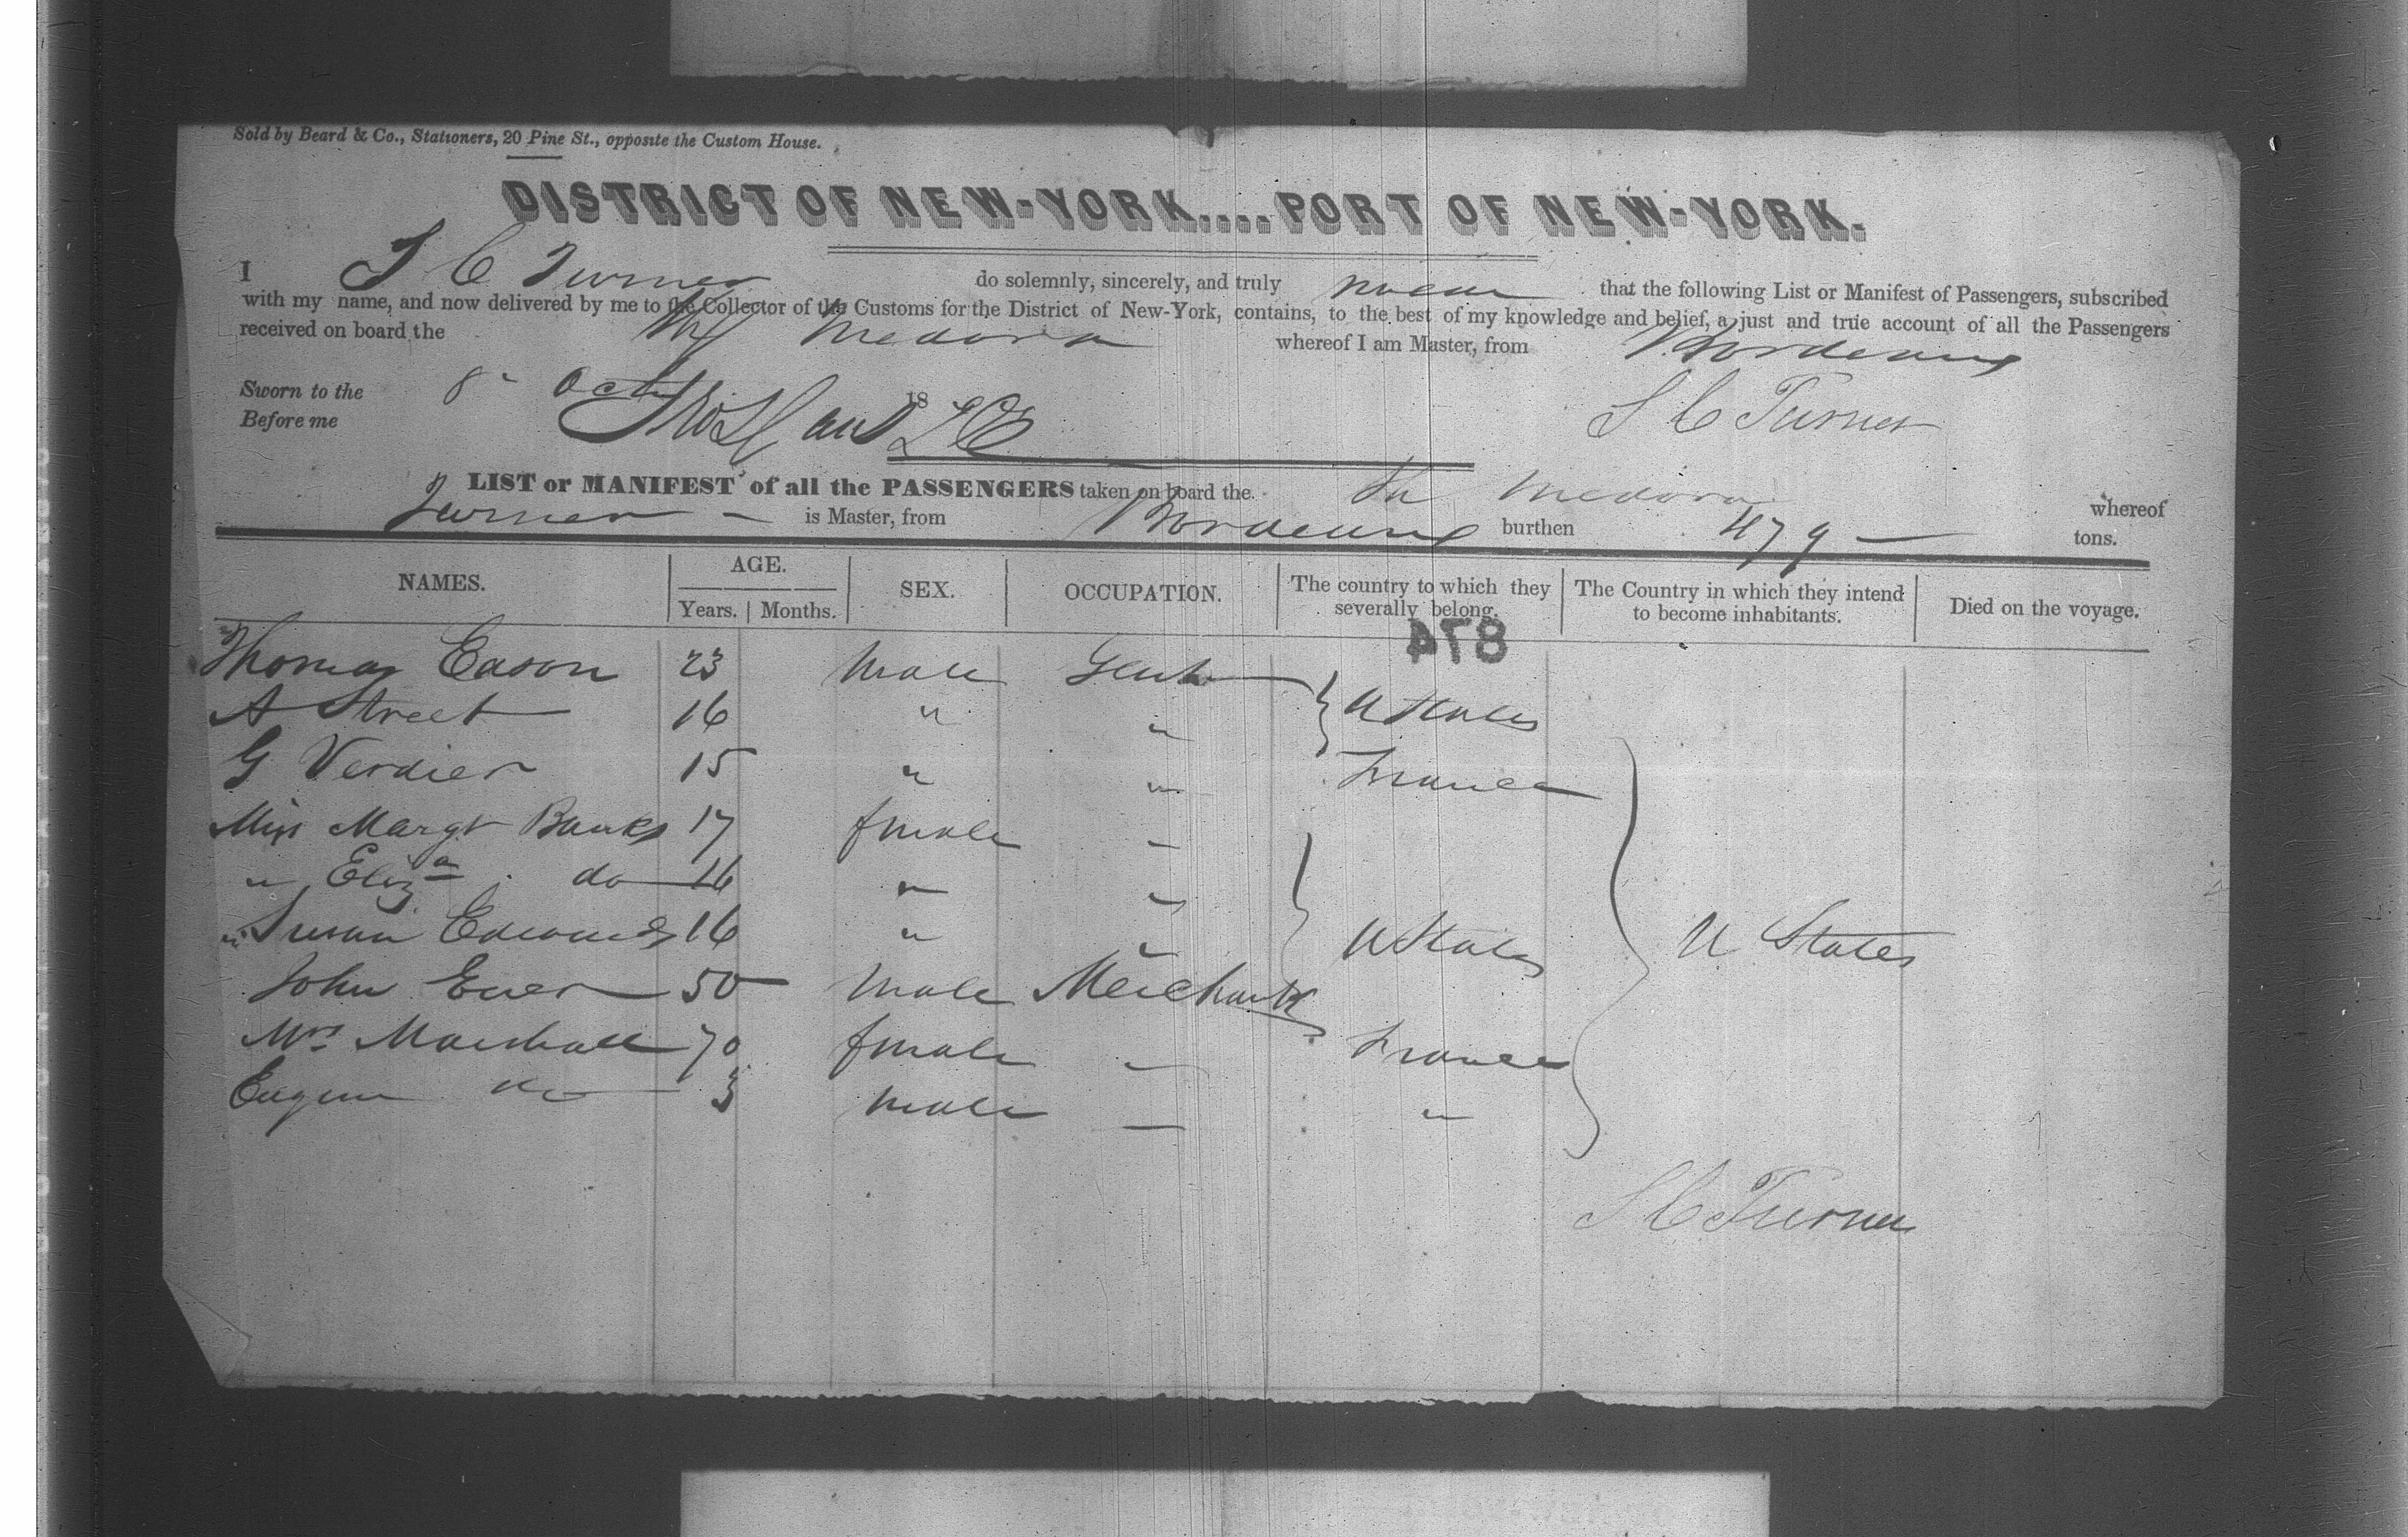 Sold by Beard & Co., Stationers, 20 Pine St., opposite the Custom House.
DISTRICT OF NEW-YORK....PORT OF NEW-YORK.
I S C Turner do solemnly, sincerely, and truly swear that the following List or Manifest of Passengers, subscribed
with my name, and now delivered by me to the Collector of the Customs for the District of New-York, contains, to the best of my knowledge and belief, a just and true account of all the Passengers
received on board the Medora whereof I am Master, from Bordeaux
Sworn to the 8 Oct 18
Before me S C Turner
LIST or MANIFEST of all the PASSENGERS taken on board the Medora whereof
Turner is Master, from Bordeaux burthen 479 tons.
NAMES. AGE. Years. Months. SEX. OCCUPATION. The country to which they severally belong. The Country in which they intend to become inhabitants. Died on the voyage.
874
Thomas Eason 23 Male Gent
A Street 16 " " U States
G Verdier 15 " " France
Miss Margt Banks 17 female -
" Eliza do 16 " "
" Susan Edwards 16 " " U States U States
John Ener 50 Male Merchant
Mrs Marshall 70 female - France
Eugene do 3 Male - "
S C Turner